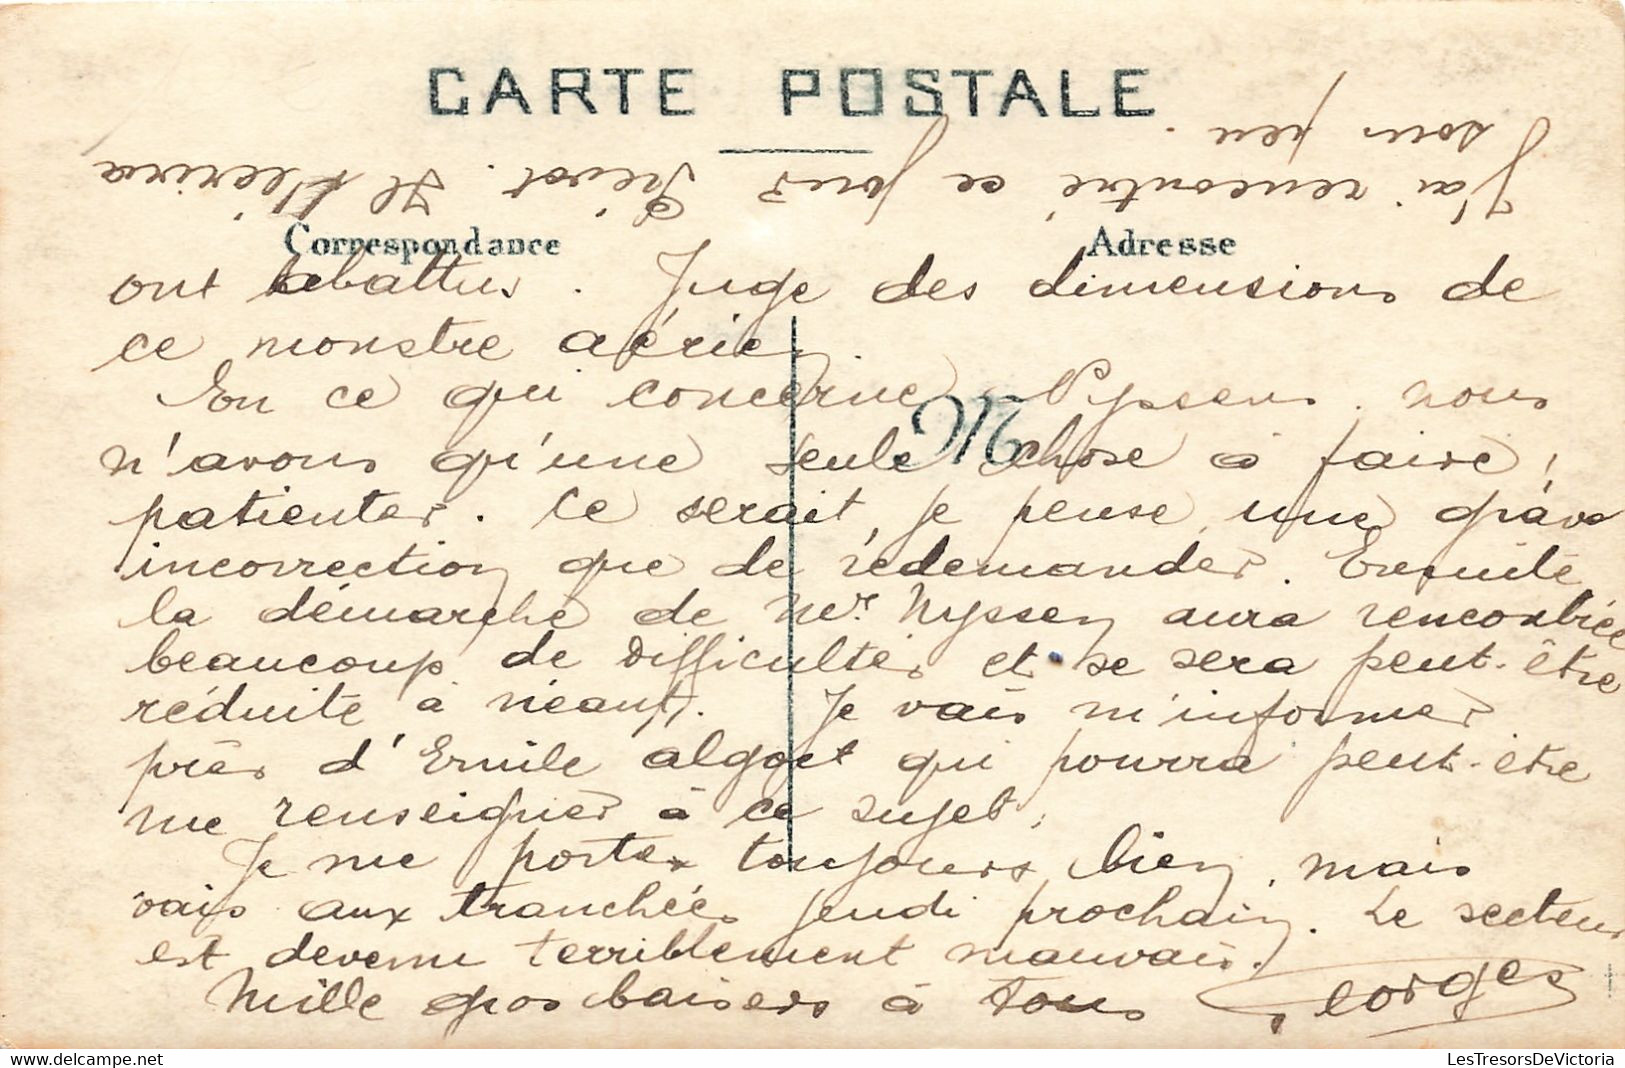 CARTE POSTALE
J'ai rencontré ce jour Prévot. Il t'écrira
sous peu.
Correspondance
Adresse
ont abattus. Juge des dimensions de
ce monstre aérien.
En ce qui concerne Nyssens, nous
n'avons qu'une seule chose à faire,
M
patienter. Ce serait, je pense, une grave
incorrection que de redemander. Ensuite
la démarche de Mr. Nyssen aura rencontrée
beaucoup de difficultés et se sera peut-être
réduite à néant. Je vais m'informer
près d'Emile Algoet qui pourra peut-être
me renseigner à ce sujet.
Je me porte toujours bien, mais
vais aux tranchées jeudi prochain. Le secteur
est devenu terriblement mauvais.
Mille gros baisers à tous Georges
LesTresorsDeVictoria